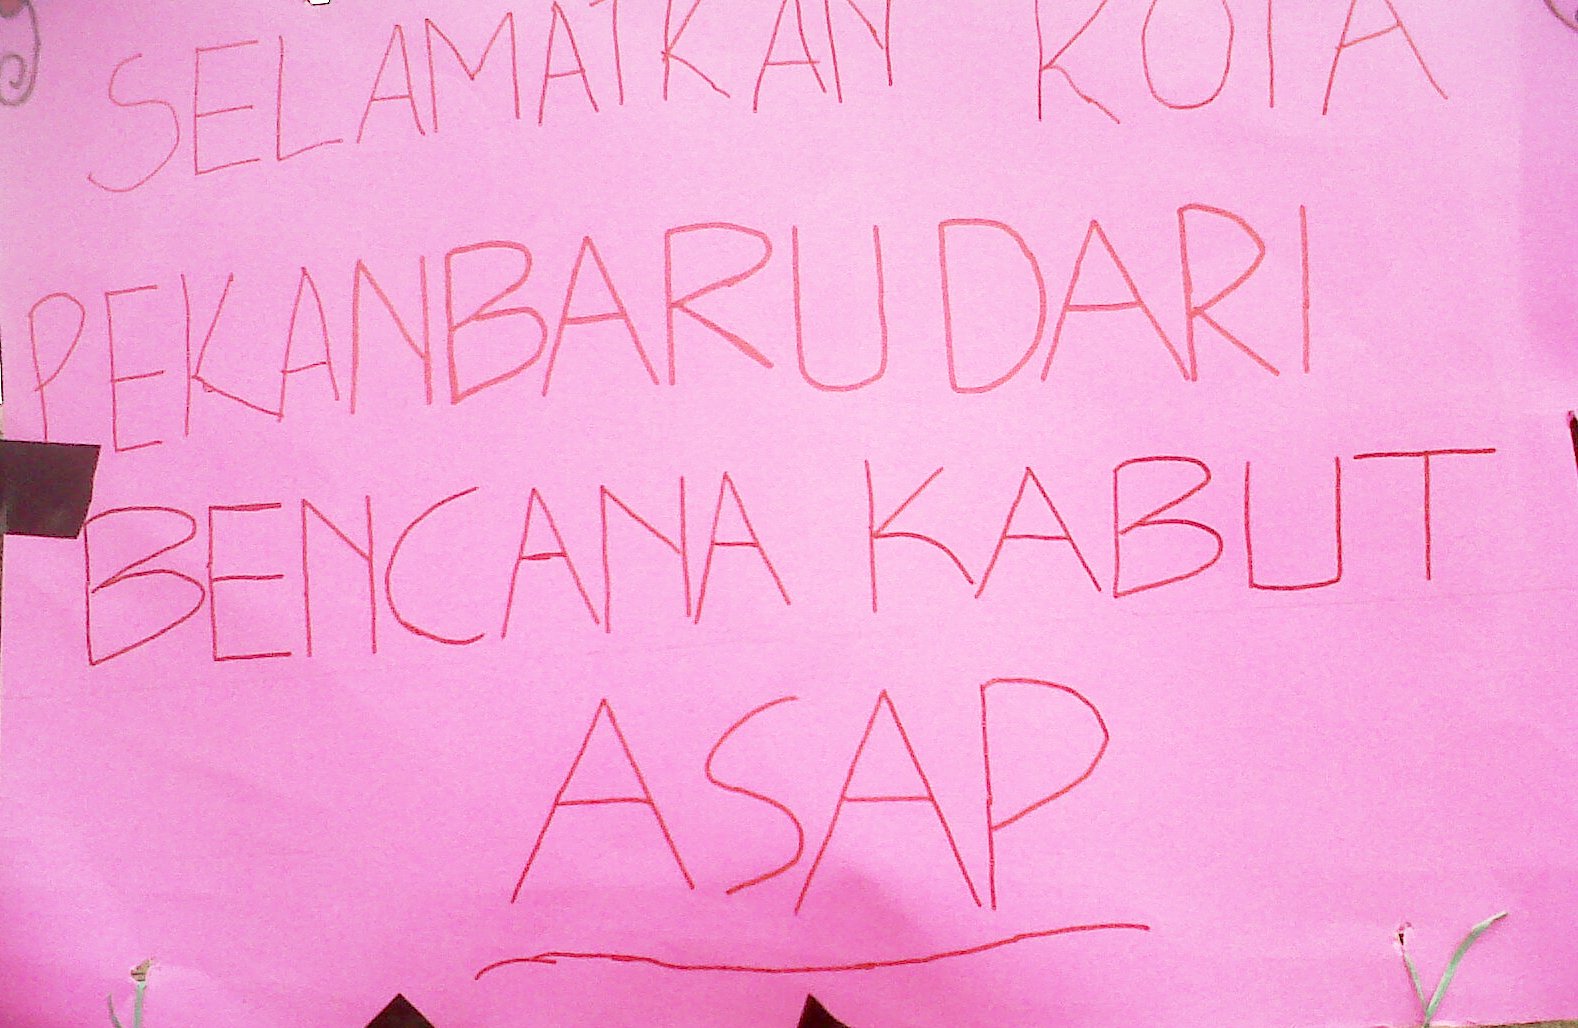 SELAMATKAN KOTA
PEKANBARU DARI
BENCANA KABUT
ASAP